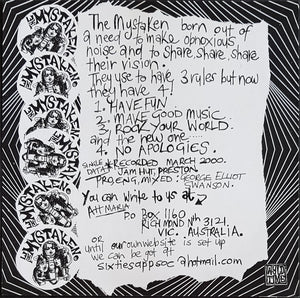 THE MYSTAKEN.
THE MYSTAKEN.
THE MYSTAKEN.
THE MYSTAKEN.
THE MYSTAKEN.
THE MYSTAKEN.
The Mystaken born out of
a need to make obnoxious
noise and to share, share, share
their vision.
They use to have 3 rules but now
they have 4!
1. HAVE FUN
2. MAKE GOOD MUSIC.
3. ROCK YOUR WORLD.
and the new one....
4. NO APOLOGIES.
RECORDED MARCH 2000.
DATA JAM HUT, PRESTON
PROD, ENG, MIXED: GEORGE ELLIOT
SWANSON.
You can write to us at
ATT MARIA
P.O BOX 1160
RICHMOND Nth 3121.
VIC. AUSTRALIA.
or
until our own website is set up
we can be got at
sixtiesappsoc@hotmail.com